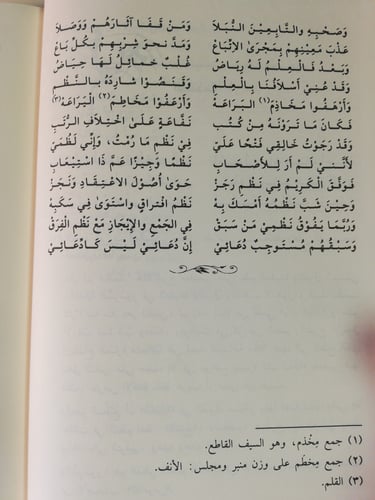 وَصَحْبِهِ وَالتَّابِعِينَ النُّبَلَا وَمَنْ قَفَا آثَارَهُمْ وَوَصَلَا
عَذْبَ مَعِينِهِمْ بِمَجْرَى الِاتِّبَاعْ وَمَدَّ نَحْوَ شِرْبِهِمْ بِكُلِّ بَاعْ
وَبَعْدُ فَالْعِلْمُ لَهُ رِيَاضُ غُلْبٌ خَمَائِلُ لَهَا حِيَاضُ
وَقَدْ عُنِيْ أَسْلَافُنَا بِالْعِلْمِ وَقَنَصُوا شَارِدَهُ بِالنَّظْمِ
وَأَرْعَفُوا مَخَاذِمَ(١) الْبَرَاعَهْ وَأَرْعَفُوا مَخَاطِمَ(٢) الْيَرَاعَهْ(٣)
فَكَانَ مَا تَرَوْنَهُ مِنْ كُتُبِ نَفَّاعَةٍ عَلَى اخْتِلَافِ الرُّتَبِ
وَقَدْ رَجَوْتُ خَالِقِي فَتْحًا عَلَيْ فِي نَظْمِ مَا رُمْتُ، وَإِنِّي لَلْعَيِيْ
لِأَنَّنِيْ لَمْ أَرَ لِلْأَصْحَابِ نَظْمًا وَجِيْزًا عَمَّ ذَا اسْتِيْعَابِ
فَوَفَّقَ الْكَرِيْمُ فِي نَظْمِ رَجَزْ حَوَى أُصُوْلَ الِاعْتِقَادِ وَنَجَزْ
وَحِيْنَ شَبَّ نَظْمُهُ أَمْسَكَ بِهْ نَظْمُ افْتِرَاقٍ وَاسْتَوَى فِي سَكْبِهْ
وَرُبَّمَا يَفُوْقُ نَظْمِيْ مَنْ سَبَقْ فِي الْجَمْعِ وَالْإِيْجَازِ مَعْ نَظْمِ الْفِرَقْ
وَسَبْقُهُمْ مُسْتَوْجِبٌ دُعَائِيْ إِنَّ دُعَائِيْ لَيْسَ كَادِّعَائِيْ
(١) جمع مِخْذم، وهو السيف القاطع.
(٢) جمع مخطم على وزن منبر ومجلس: الأنف.
(٣) القلم.